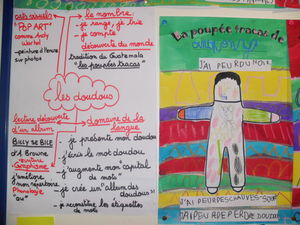 arts visuels
"POP ART"
comme Andy
Warhol
-peinture d'encre
sur photos
le nombre
-je range, je trie
-je compte
découverte du monde
tradition du Guatemala
"les poupées tracas"
les doudous
lecture, découverte
d'un album
BILLY SE BILE
d'A. Browne
-écriture
-Graphisme
j'améliore
mon répertoire
Phonologie
"ou"
domaine de la
langue
-je présente mon doudou
-j'écris le mot doudou
-j'augmente mon "capital
de mots"
-je crée un "album des
doudous"
-je reconstitue les étiquettes
de mots
La poupée tracas de
J'AI PEUR DU NOIR
J'AI PEUR DES CHAUVES SOURIS
J'AI PEUR DE PERDRE DOUDOU